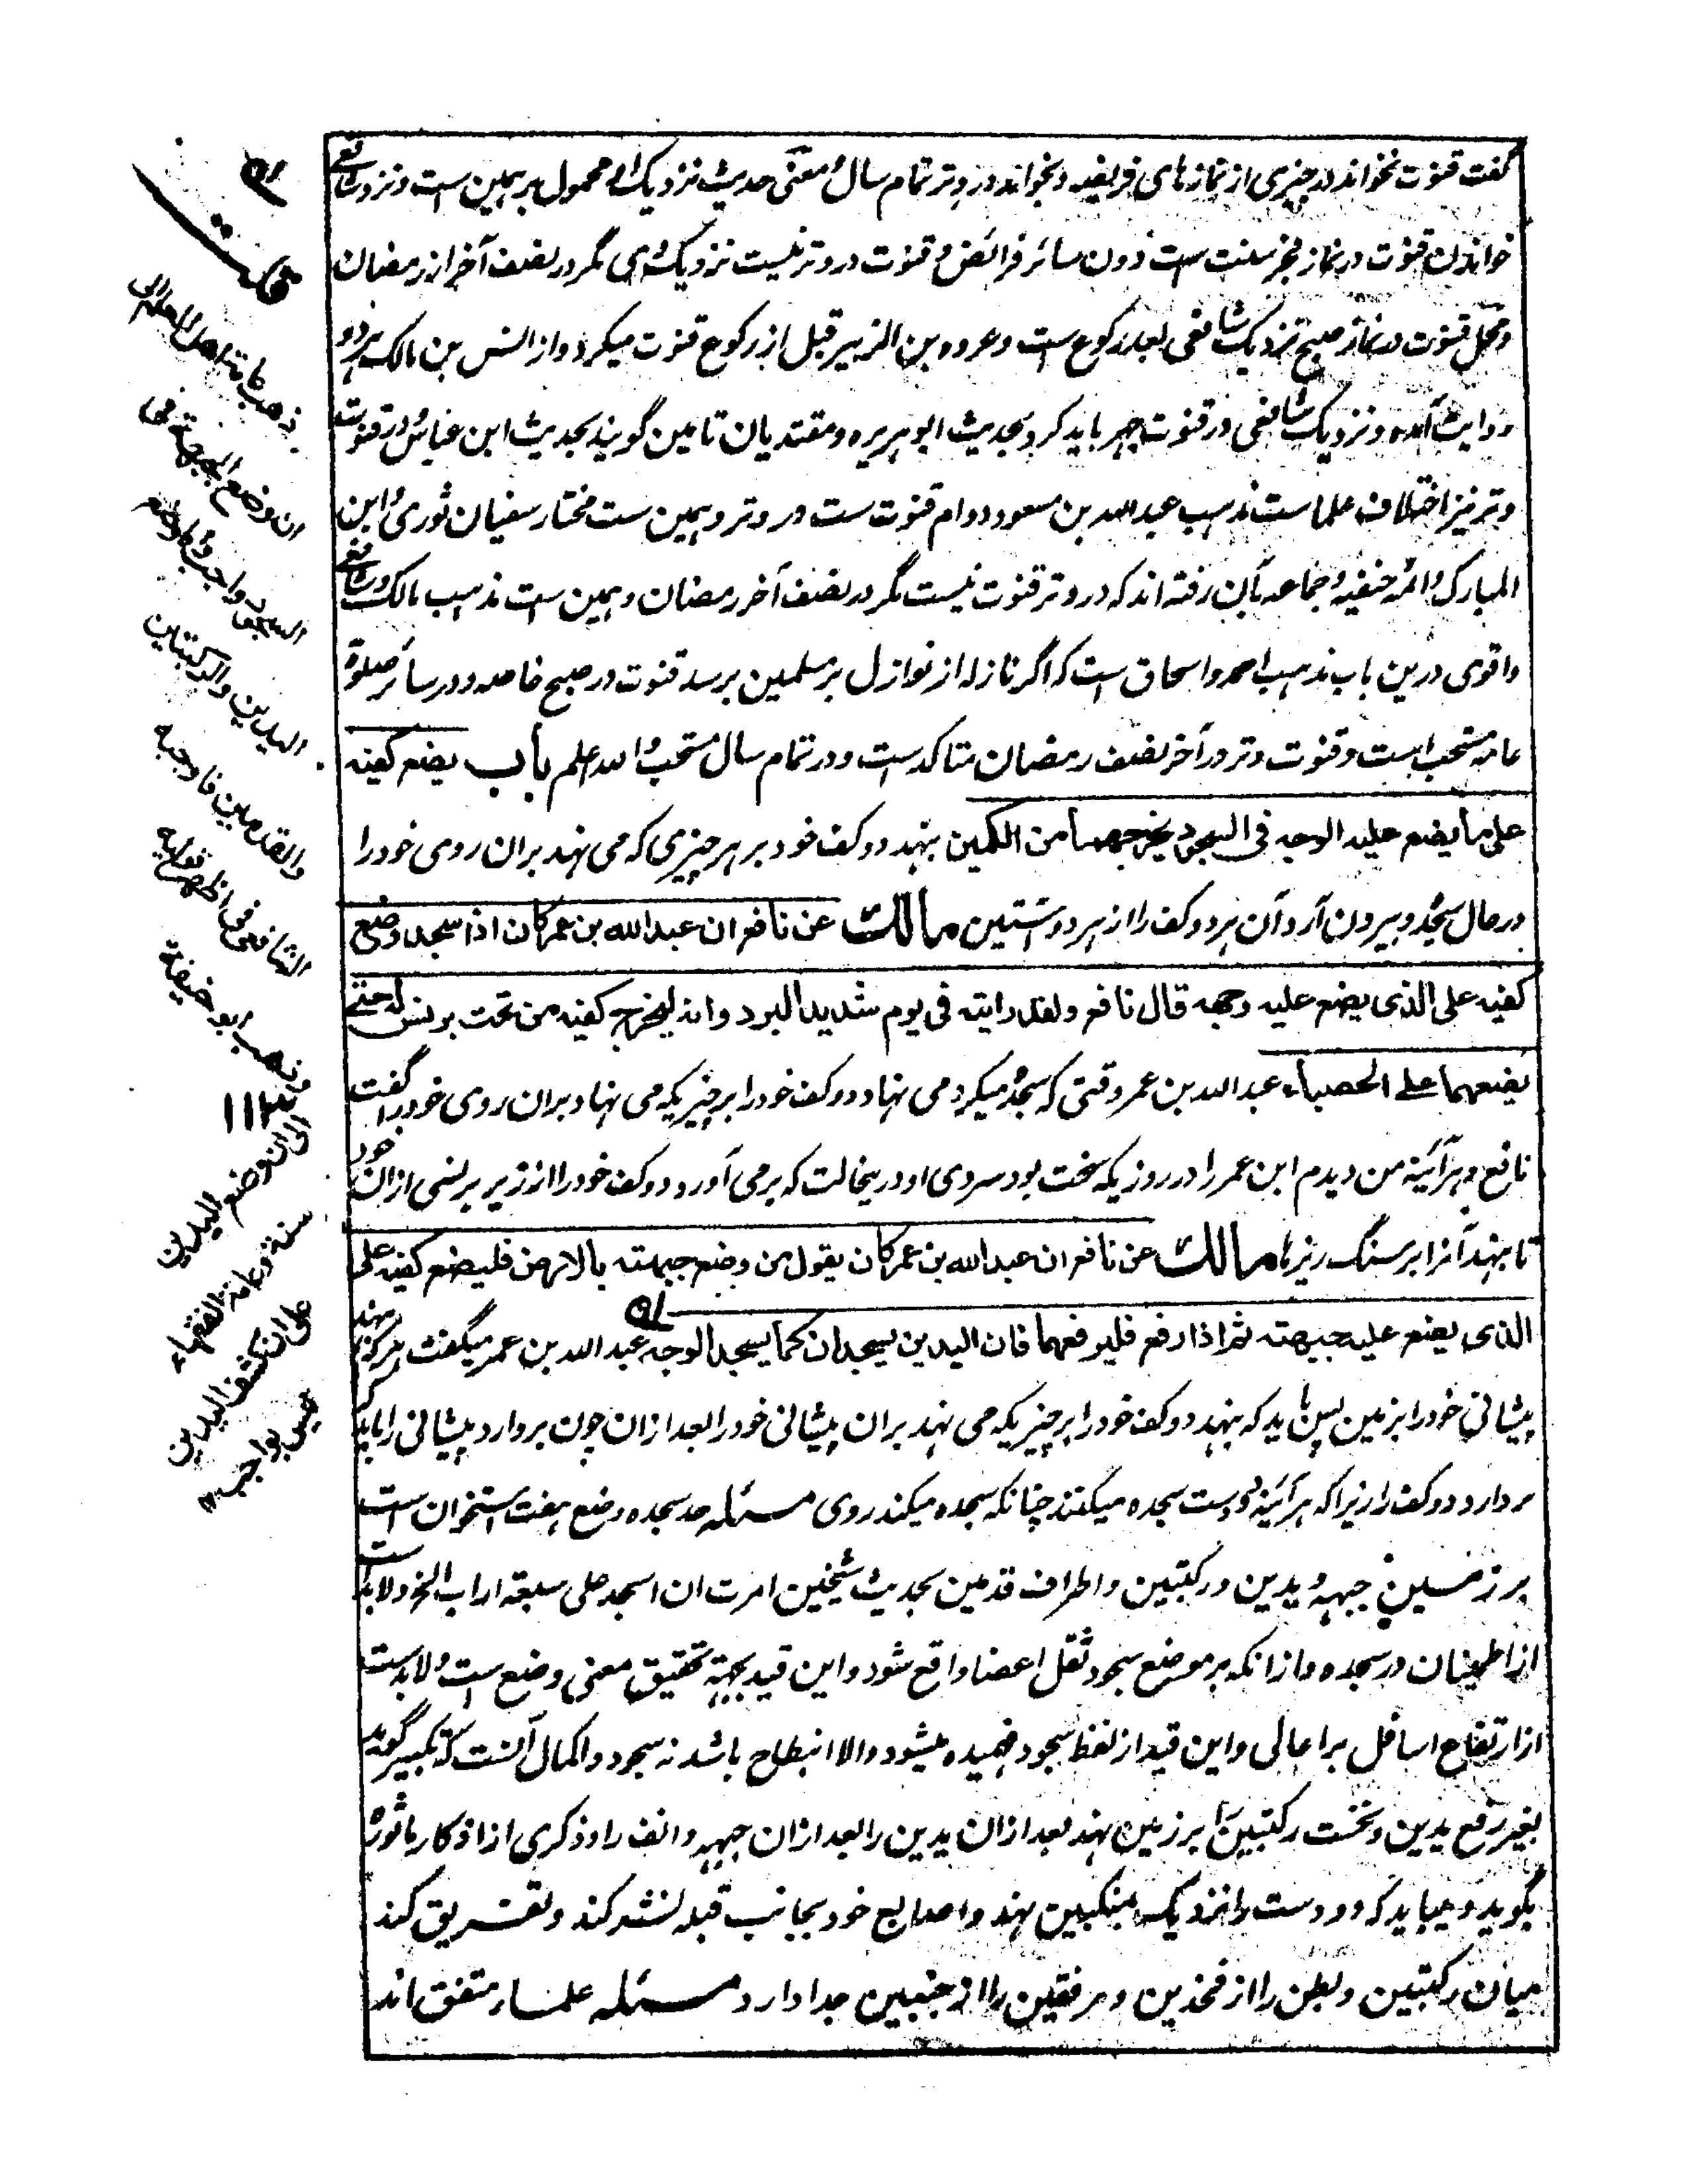 گفت قنوت نخواند در چیزی از نمازهای فریضه و بخواند در وتر تمام سال و معنی حدیث نزدیک محمول بر همین ست و نزد شافعی
خواندن قنوت در نماز فجر سنت ست دون سائر فرائض و قنوت در وتر نیست نزدیک وی مگر در نصف آخر از رمضان
و محل قنوت در نماز صبح نزدیک شافعی بعد رکوع ست و عروه بن الزبیر قبل از رکوع قنوت میکرد و از انس بن مالک هر دو
روایت آمده و نزدیک شافعی در قنوت جهر باید کرد بحدیث ابو هریره و مقتدیان تامین گویند بحدیث ابن عباس و در قنوت
وتر نیز اختلاف علماست مذهب عبد الله بن مسعود دوام قنوت ست در وتر و همین ست مختار سفیان ثوری و ابن
المبارک و ائمه حنفیه و جماعه بآن رفته اند که در وتر قنوت نیست مگر در نصف آخر رمضان و همین ست مذهب مالک و شافعی
و اقوی درین باب مذهب احمد و اسحاق ست که اگر نازله از نوازل بر مسلمین برسد قنوت در صبح خاصه و در سائر صلوة
عامه مستحب است و قنوت وتر در آخر نصف رمضان متاکد ست و در تمام سال مستحب و الله اعلم باب یضع کفیه
علی ما یضع علیه الوجه فی السجود یخرجهما من الکمین بنهد دو کف خود بر هر چیزی که می نهد بران روی خود را
در حال سجده و بیرون آرد آن هر دو کف را از هر دو آستین مالک عن نافع ان عبد الله بن عمر کان اذا سجد وضع
کفیه علی الذی یضع علیه وجهه قال نافع ولقد رایته فی یوم شدید البرد وانه لیخرج کفیه من تحت برنس له حتی
یضعهما علی الحصباء عبد الله بن عمر وقتی که سجده میکرد می نهاد دو کف خود را بر چیزیکه می نهاد بران روی خود را گفت
نافع و هر آئینه من دیدم ابن عمر را در روزیکه سخت بود سردی او درینحالت که برمی آورد دو کف خود را از زیر برنسی ازان خود
تا بنهد آنرا بر سنگ ریزها مالک عن نافع ان عبد الله بن عمر کان یقول من وضع جبهته بالارض فلیضع کفیه علی
الذی یضع علیه جبهته ثم اذا رفع فلیرفعهما فان الیدین یسجدان کما یسجد الوجه عبد الله بن عمر میگفت هر که بنهد
پیشانی خود را بزمین پس باید که بنهد دو کف خود را بر چیزیکه می نهد بران پیشانی خود را بعد ازان چون بردارد پیشانی را باید که
بردارد دو کف را زیرا که هر آئینه دو دست سجده میکنند چنانکه سجده میکند روی مسئله حد سجده وضع هفت استخوان ست
بر زمین جبهه و یدین و رکبتین و اطراف قدمین بحدیث شیخین امرت ان اسجد علی سبعة اراب الخ و لابد است
از اطمینان در سجده و ازانکه بر موضع سجود ثقل اعضا واقع شود و این قید بجهة تحقیق معنی وضع ست و لابد ست
از ارتفاع اسافل بر اعالی و این قید از لفظ سجود فهمیده میشود والا انبطاح باشد نه سجود و اکمال آنست که تکبیر گوید
بغیر رفع یدین و نخست رکبتین را بر زمین نهد بعد ازان یدین را بعد ازان جبهه و انف را و ذکری از اذکار ماثوره
بگوید و میباید که دو دست را نزدیک منکبین نهد و اصابع خود بجانب قبله نشر کند و تفریق کند
میان رکبتین و بطن را از فخذین و مرفقین را از جنبین جدا دارد مسئله علما متفق اند
ان وضع الجبهة فی
السجود واجب
الیدین والرکبتین
والقدمین فاوجبه
الشافعی فی اظهر قولیه
ومذهب ابو حنیفة
۱۱۲
ان وضع الیدین
سنة وعامة الفقهاء
علی ان کشف الیدین
لیس بواجب